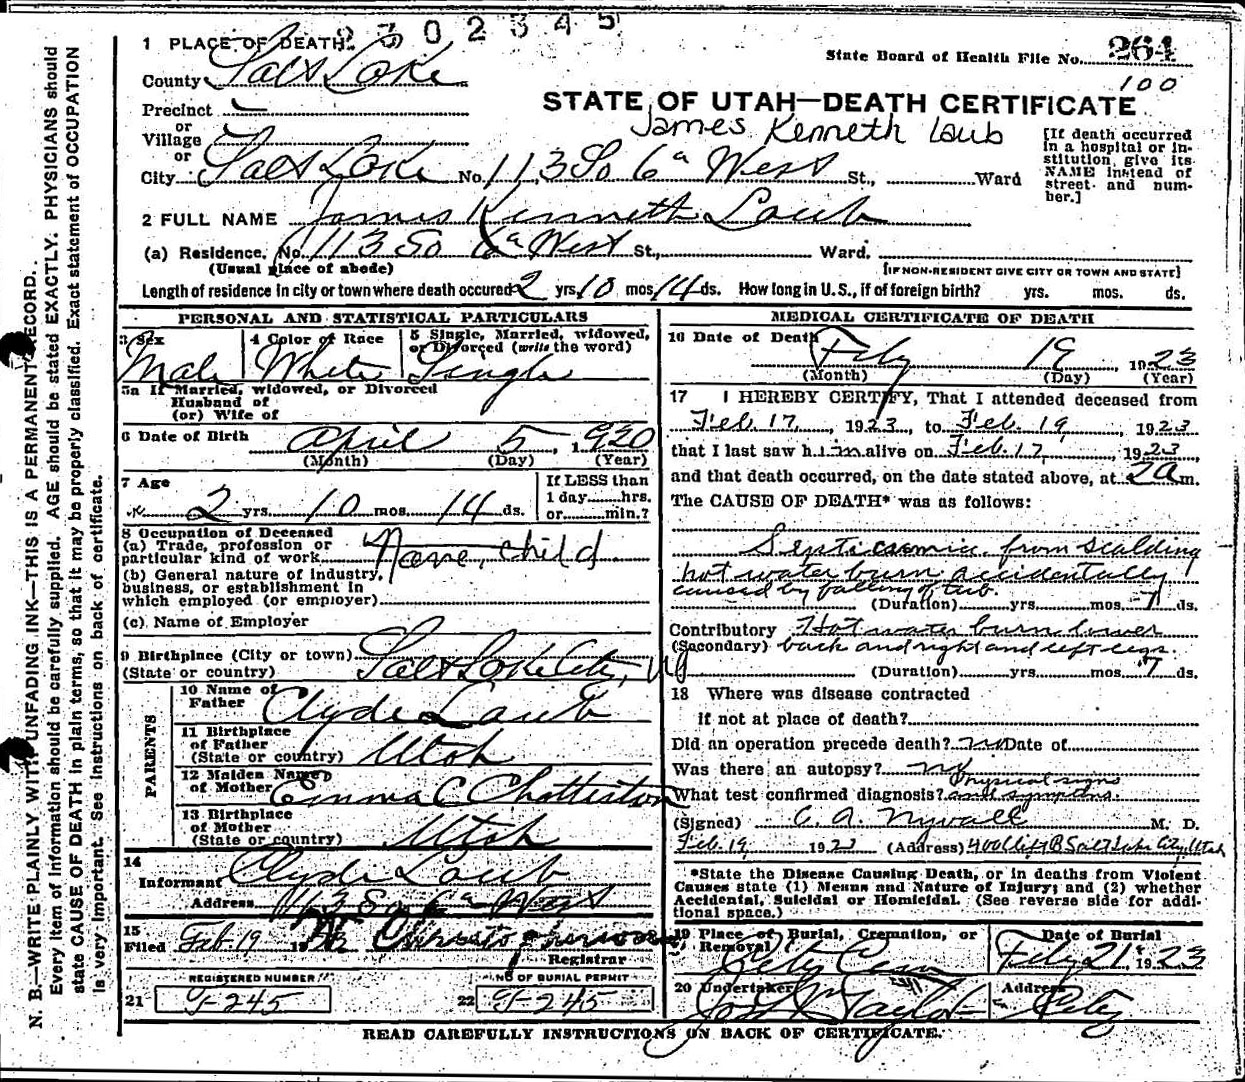 2302345
1 PLACE OF DEATH
State Board of Health File No. 264
County Salt Lake
100
Precinct
STATE OF UTAH—DEATH CERTIFICATE
or
Village
James Kenneth Laub
[If death occurred in a hospital or institution, give its NAME instead of street and number.]
or
City Salt Lake No. 113 So 6th West St., Ward
2 FULL NAME James Kenneth Laub
(a) Residence. No. 113 So 6th West St., Ward.
(Usual place of abode)
[IF NON-RESIDENT GIVE CITY OR TOWN AND STATE]
Length of residence in city or town where death occured 2 yrs. 10 mos. 14 ds. How long in U.S., if of foreign birth? yrs. mos. ds.
PERSONAL AND STATISTICAL PARTICULARS
3 Sex
Male
4 Color of Race
White
5 Single, Married, widowed, or Divorced (write the word)
Single
5a If Married, widowed, or Divorced
Husband of
(or) Wife of
6 Date of Birth April 5, 1920
(Month) (Day) (Year)
7 Age
2 yrs. 10 mos. 14 ds.
If LESS than
1 day hrs.
or min.?
8 Occupation of Deceased
(a) Trade, profession or
particular kind of work None, child
(b) General nature of industry,
business, or establishment in
which employed (or employer)
(c) Name of Employer
9 Birthplace (City or town) Salt Lake City,
(State or country)
PARENTS
10 Name of
Father Clyde Laub
11 Birthplace
of Father
(State or country) Utah
12 Maiden Name
of Mother Emma C
13 Birthplace
of Mother
(State or country) Utah
14
Informant Clyde Laub
Address 113 So 6th West
15
Filed Feb. 19
Registrar
REGISTERED NUMBER
NO OF BURIAL PERMIT
21 G-245
22 G-245
MEDICAL CERTIFICATE OF DEATH
16 Date of Death
Feby 19 1923
(Month) (Day) (Year)
17 I HEREBY CERTIFY, That I attended deceased from
Feb. 17, 1923, to Feb. 19, 1923
that I last saw him alive on Feb. 17, 1923,
and that death occurred, on the date stated above, at 2 a m.
The CAUSE OF DEATH* was as follows:
Septicaemia from scalding
hot water burn accidentally
caused by falling of tub.
(Duration) yrs. mos. 7 ds.
Contributory Hot water burn lower
(Secondary) back and right and left legs.
(Duration) yrs. mos. 7 ds.
18 Where was disease contracted
if not at place of death?
Did an operation precede death? no Date of
Was there an autopsy? no
Physical signs
What test confirmed diagnosis? and symptoms.
(Signed) C. A. Nyvall M. D.
Feb. 19 1923 (Address) 400 Clift B Salt Lake City, Utah
*State the Disease Causing Death, or in deaths from Violent
Causes state (1) Means and Nature of Injury; and (2) whether
Accidental, Suicidal or Homicidal. (See reverse side for addi-
tional space.)
19 Place of Burial, Cremation, or
Removal
City Cem
Date of Burial
Feby 21, 1923
20 Undertaker
Address
City
READ CAREFULLY INSTRUCTIONS ON BACK OF CERTIFICATE.
N. B.—WRITE PLAINLY WITH UNFADING INK—THIS IS A PERMANENT RECORD.
Every item of information should be carefully supplied. AGE should be stated EXACTLY. PHYSICIANS should
state CAUSE OF DEATH in plain terms, so that it may be properly classified. Exact statement of OCCUPATION
is very important. See instructions on back of certificate.